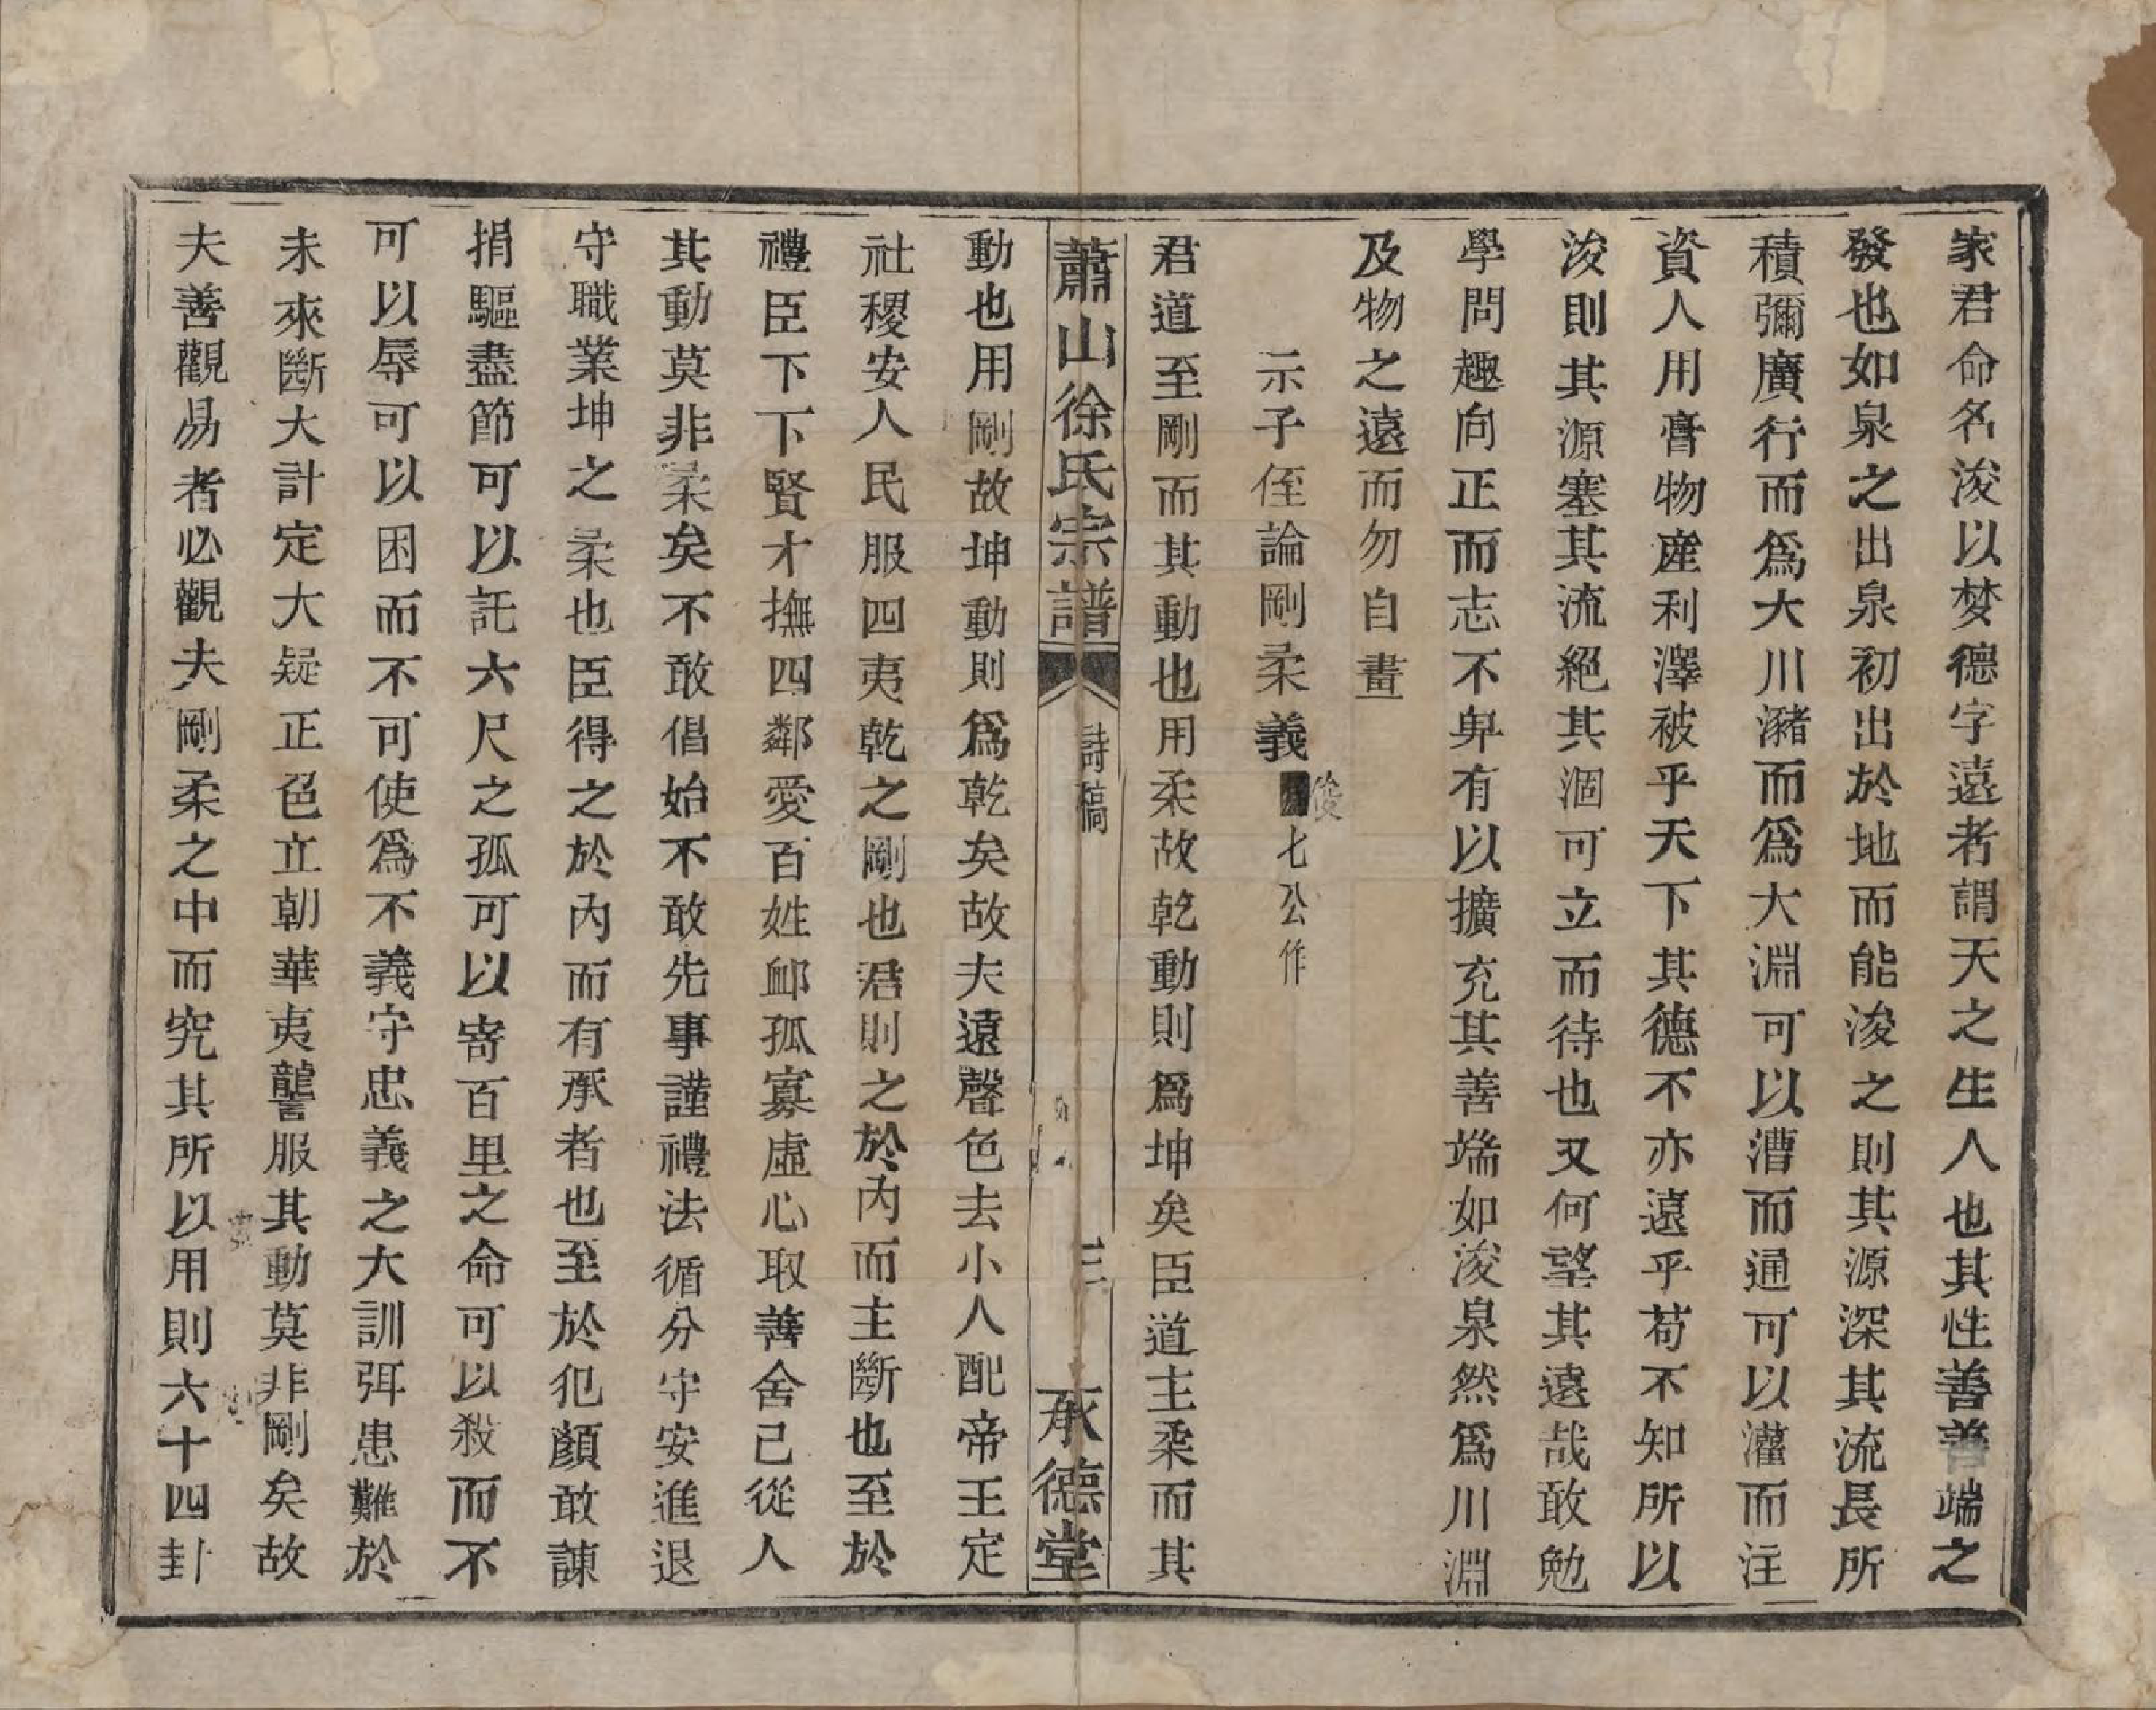 家君命名浚以棼德字遠者謂天之生人也其性善善端之
發也如泉之出泉初出於地而能浚之則其源深其流長所
積彌廣行而爲大川瀦而爲大淵可以漕而通可以灌而注
資人用膏物產利澤被乎天下其德不亦遠乎苟不知所以
浚則其源塞其流絕其涸可立而待也又何望其遠哉敢勉
學問趣向正而志不卑有以擴充其善端如浚泉然爲川淵
及物之遠而勿自畫
示子侄論剛柔義 俊七公作
君道至剛而其動也用柔故乾動則爲坤矣臣道主柔而其
蕭山徐氏宗譜 詩稿 三 承德堂
動也用剛故坤動則爲乾矣故夫遠聲色去小人配帝王定
社稷安人民服四夷乾之剛也君則之於內而主斷也至於
禮臣下下賢才撫四鄰愛百姓卹孤寡虛心取善舍己從人
其動莫非柔矣不敢倡始不敢先事謹禮法循分守安進退
守職業坤之柔也臣得之於內而有承者也至於犯顏敢諫
捐軀盡節可以託六尺之孤可以寄百里之命可以殺而不
可以辱可以困而不可使爲不義守忠義之大訓弭患難於
未來斷大計定大疑正色立朝華夷讋服其動莫非剛矣故
夫善觀易者必觀夫剛柔之中而究其所以用則六十四卦